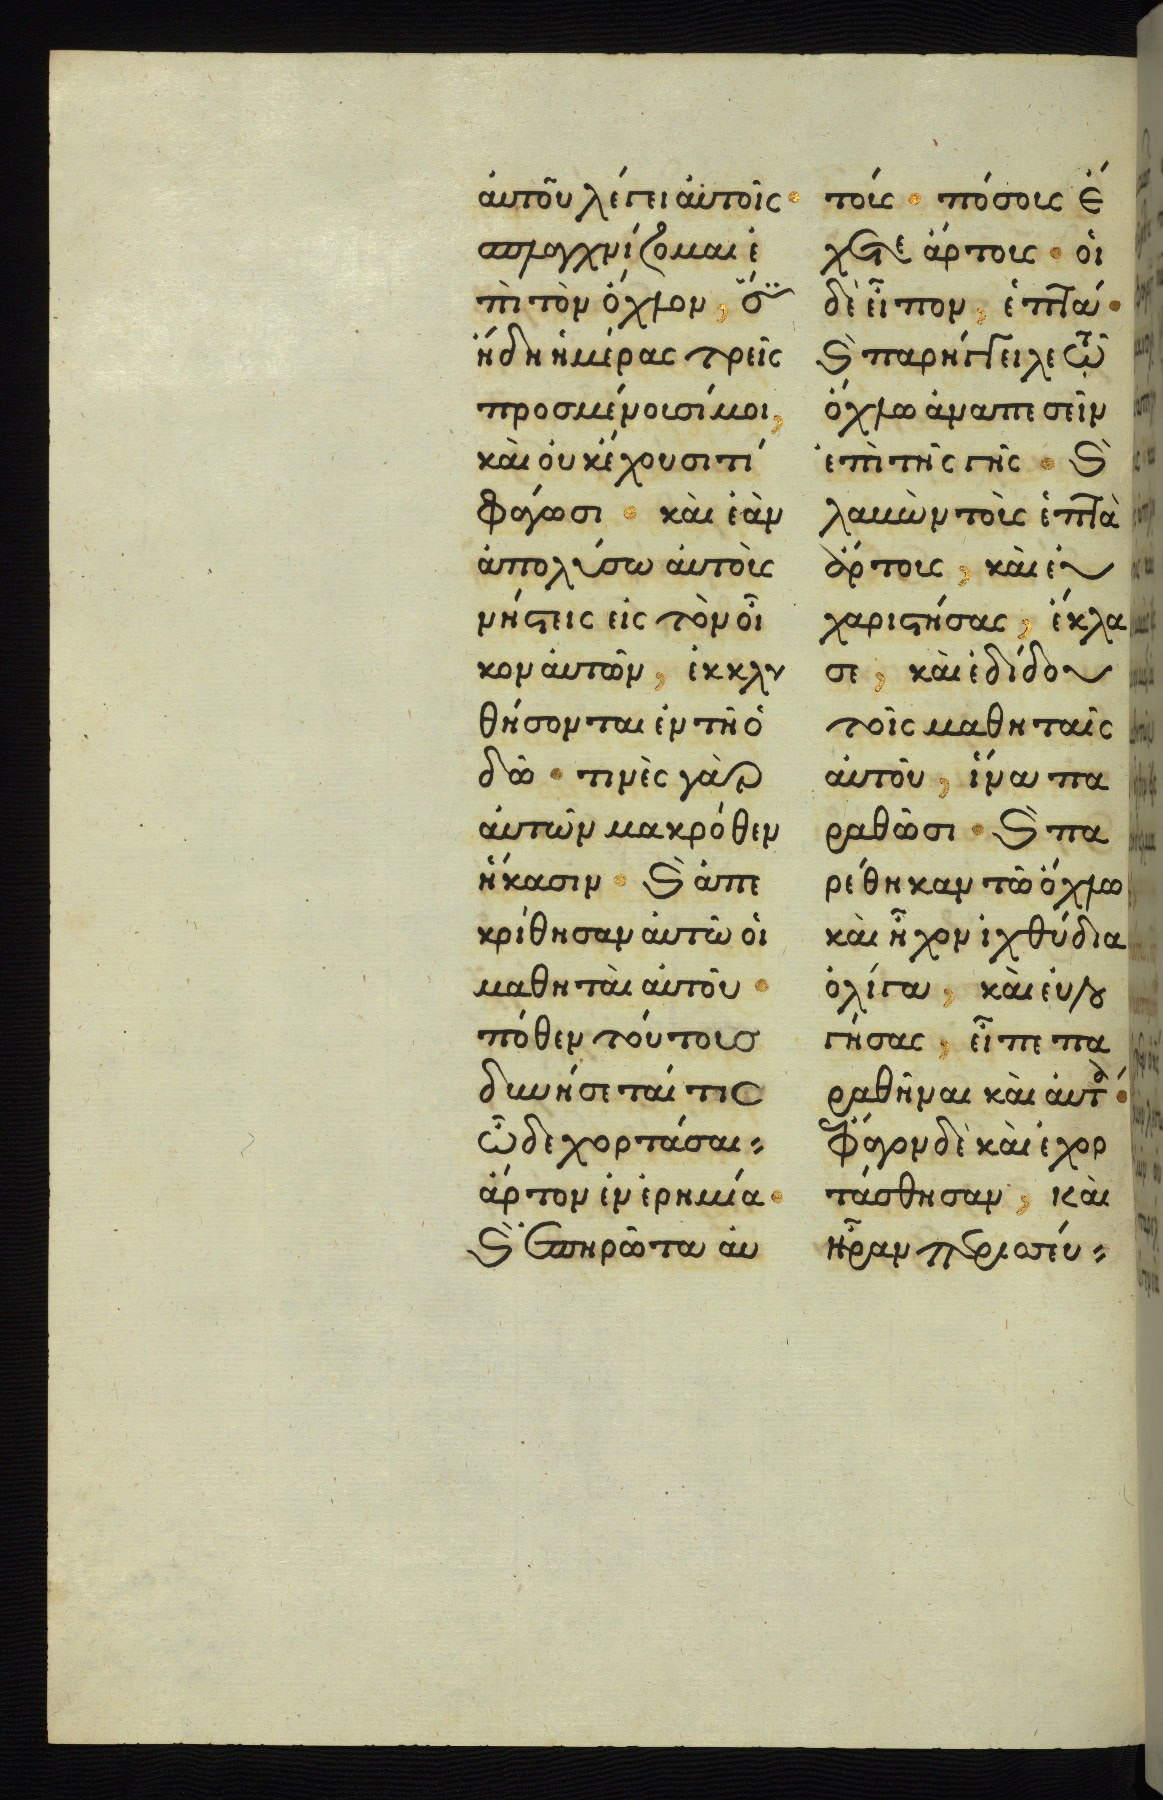 ἀυτοῦ λέγει ἀυτοῖς·
σπλαγχνίζομαι ἐ
πὶ τὸν ὄχλον, ὅτι
ἤδη ἡμέρας τρεῖς
προσμένουσί μοι,
καὶ οὐκ ἔχουσι τί
φάγωσι· καὶ ἐὰν
ἀπολύσω ἀυτοὺς
νήστεις εἰς τὸν οἶ
κον ἀυτῶν, ἐκκλυ
θήσονται ἐν τῆ ὁ
δῶ· τινὲς γὰρ
ἀυτῶν μακρόθεν
ἥκασιν· καὶ ἀπε
κρίθησαν ἀυτῶ οἱ
μαθηταὶ ἀυτοῦ·
πόθεν τούτους
δυνήσεταί τις
ὧδε χορτάσαι
ἄρτον ἐν ἐρημία·
καὶ ἐπηρῶτα ἀυ
τούς· πόσους ἔ
χετε ἄρτους· οἱ
δὲ εἶπον, ἑπτά·
καὶ παρήγγειλε τῶ
ὄχλω ἀναπεσεῖν
ἐπὶ τῆς γῆς· καὶ
λαβὼν τοὺς ἑπτὰ
ἄρτους, καὶ ἐυ
χαριστήσας, ἔκλα
σε, καὶ ἐδίδου
τοῖς μαθηταῖς
ἀυτοῦ, ἵνα πα
ραθῶσι· καὶ πα
ρέθηκαν τῶ ὄχλω
καὶ εἶχον ἰχθύδια
ὀλίγα, καὶ ἐυλο
γήσας, εἶπε πα
ραθῆναι καὶ ἀυτά·
ἔφαγον δὲ καὶ ἐχορ
τάσθησαν, καὶ
ἦραν περισσεύ